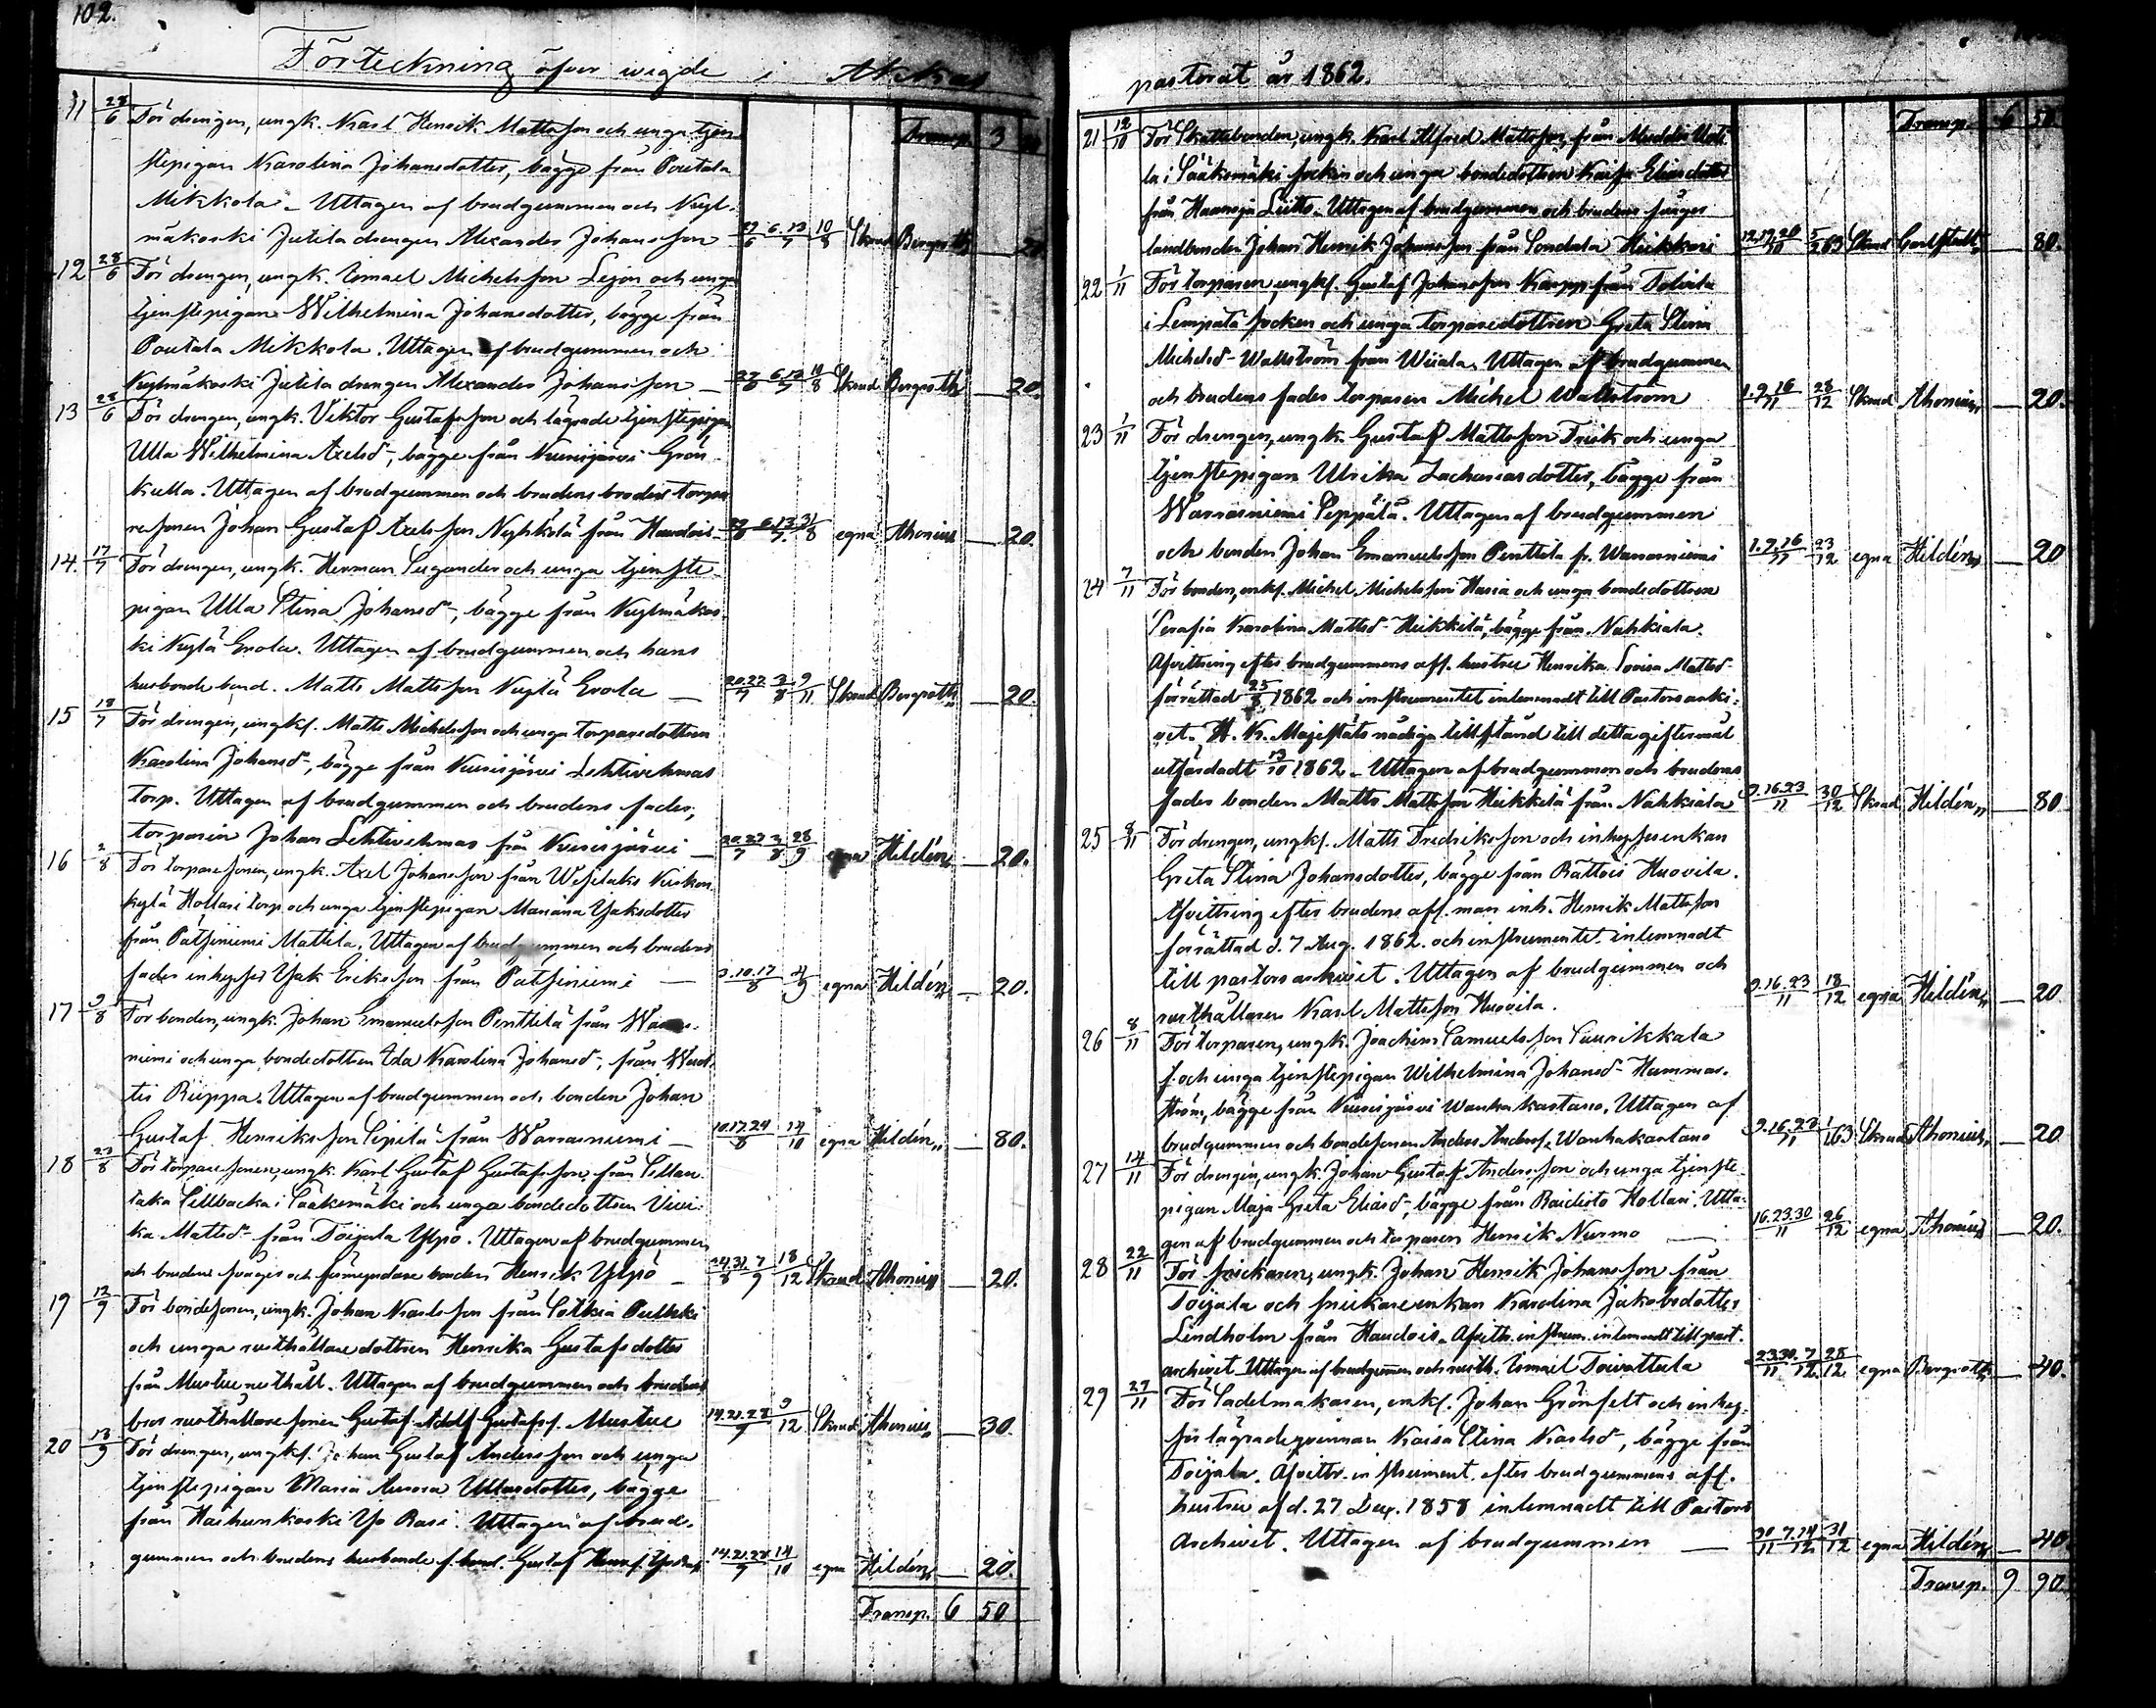 102.
Förteckning öfver wigde i Akkas
Transp. 3
11 28/6 För drengen, ungk. Karl Henrik Mattsson och unga tjen-
stepigan Karolina Johansdotter, bägge från Poutala
Mikkola. Uttagen af brudgummen och Kyl-
mäkoski Jutila drengen Alexander Johansson 27/6 6.13/7 10/8 Skrud Bergroth 20
12 28/6 För drengen, ungk. Ismael Michelsson Lejon och unga
tjenstepigan Wilhelmina Johansdotter, bägge från
Poutala Mikkola. Uttagen af brudgummen och
Kylmäkoski Jutila drengen Alexander Johansson 6.13/7 10/8 Skrud Bergroth 20.
13 28/6 För drengen, ungk. Viktor Gustafsson och lägrade tjenstepigan
Ulla Wilhelmina Axelsd., bägge från Kurisjärvi Grön-
kulla. Uttagen af brudgummen och brudens broder torpa-
resonen Johan Gustaf Axelsson Nyhkölä från Haudois 6.13/7 31/8 egna Ahonius 20.
14. 17/7 För drengen, ungk. Herman Segander och unga tjenste-
pigan Ulla Stina Johansd., bägge från Kylmäkos-
ki Kylä Erola. Uttagen af brudgummen och hans
husbonde bond. Matts Mattsson Kylä Erola 20.27/7 3/8 9/11 Skrud Bergroth 20.
15 18/7 För drengen, ungk. Matts Michelsson och unga torparedottren
Karolina Johansd., bägge från Kurisjärvi Lehtivehmas
torp. Uttagen af brudgummen och brudens fader,
torparen Johan Lehtivehmas från Kurisjärvi 20.27/7 3/8 28/9 egna Hildén 20.
16 2/8 För torparesonen, ungk. Axel Johansson från Wesilaks
kylä Hollari torp och unga tjenstepigan Mariana Isaksdotter
från Patsiniemi Mattila. Uttagen af brudgummen och brudens
fader inhyses Isak Eriksson från Patsiniemi 3.10.17/8 egna Hildén 20.
17 9/8 För bonden, ungk. Johan Emanuelsson Penttilä från Warras-
niemi och unga bondedottren Eda Karolina Johansd., från
Riippa. Uttagen af brudgummen och bonden Johan
Gustaf Henriksson Sipilä från Warrasniemi 10.17.24/8 14/10 egna Hildén 80.
18 23/8 För torparesonen, ungk. Karl Gustaf Gustafsson från Sillan-
taka Sillbacka i Sääksmäki och unga bondedottren
Mattsd. från Toijala Ylpö. Uttagen af brudgummen
och brudens svåger och förmyndare bonden Henrik Ylpö 24.31/8 7/9 18/12 Skrud Ahonius 20.
19 12/9 För bondesonen, ungk. Johan Karlsson från Sotkia
och unga rusthållaredottren Henrika Gustafsdotter
från Mustue rusthåll. Uttagen af brudgummen och brudens
bror rusthållaresonen Gustaf Adolf Gustafss. Mustue 14.21.28/9 9/12 Skrud Ahonius 30.
20 13/9 För drengen, ungk. Johan Gustaf Andersson och unga
tjenstepigan Maria Aurora, bägge
från Haihunkoski Yli Rasi. Uttagen af brud-
gummen och brudens husbonde f. bond. Gustaf 14.21.28/9 14/10 egna Hildén 20.
Transp. 6 50
pastorat år 1862.
Transp. 6 50
21 12/10 För Skattebonden, ungk. Karl Alfred Mattsson, från
la i Sääksmäki socken och unga bondedottren Kaisa Eliasdotter
från Haansja Liitto. Uttagen af brudgummen och brudens svåger
landbonden Johan Henrik Johansson från Sondala Heikkari 12.19.26/10 5/2 63 Skrud 80.
22 1/11 För torparen, ungk. Gustaf Johansson Karpp från
i Lempälä socken och unga torparedottren Greta Stina
Michelsd. Wallström från Wiiala. Uttagen af brudgummen
och brudens fader torparen Michel Wallström 1.9.16/11 28/12 Skrud Ahonius 20.
23 1/11 För drengen, ungk. Gustaf Mattsson Frisk och unga
tjenstepigan Ulrika Zachariasdotter, bägge från
Warrasniemi Seppälä. Uttagen af brudgummen
och bonden Johan Emanuelsson Penttilä fr. Warrasniemi 1.9.16/11 23/12 egna Hildén 20
24 7/11 För bonden, enkl. Michel Michelsson Haria och unga bondedottren
Serafia Karolina Mattsd. Heikkilä, bägge från Nahkiala.
Afvittring efter brudgummens afl. hustru Henrika Lovisa Mattsd.
förrättad 25/8 1862 och instrumentet inlemnadt till Pastorsarki-
vet. H. K. Majestäts nådiga tillstånd till detta giftermål
utfärdadt 13/10 1862. Uttagen af brudgummen och brudens
fader bonden Matts Mattsson Heikkilä från Nahkiala 9.16.23/11 30/12 Skrud Hildén 80
25 8/11 För drengen, ungk. Matts Fredriksson och inhysesenkan
Greta Stina Johansdotter, bägge från Rättöis Huovila.
Afvittring efter brudens afl. man inh. Henrik Mattsson
förrättad d. 7 Aug. 1862. och instrumentet inlemnadt
till pastorsarkivet. Uttagen af brudgummen och
rusthållaren Karl Mattsson Huovila. 9.16.23/11 18/12 egna Hildén 20
26 8/11 För torparen, ungk. Joachim Samuelsson Suurikkala
f. och unga tjenstepigan Wilhelmina Johansd. Hammar-
ström, bägge från Kurisjärvi Wanhakartano. Uttagen af
brudgummen och bondesonen Anders Anderss. Wanhakartano 9.16.23/11 Skrud Ahonius 20
27 14/11 För drengen, ungk. Johan Gustaf Andersson och unga tjenste-
pigan Maja Greta Eliasd., bägge från Hollari. Utta-
gen af brudgummen och torparen Henrik Nurmo 16.23.30/11 26/12 egna Ahonius 20.
28 22/11 För snickaren, ungk. Johan Henrik Johansson från
Toijala och snickareenkan Karolina Jakobsdotter
Lindholm från Haudois. Afvittr. instrum. inlemnadt till past.
archivet. Uttagen af brudgummen och rusth. Ismael Toivattula 23.30/11 7/12 28/12 egna Bergroth 40.
29 27/11 För Sadelmakaren, enkl. Johan Grönfelt och inhy-
ses lägradeqvinnan Kaisa Stina Karlsd., bägge från
Toijala. Afvittr. instrument efter brudgummens afl.
hustru af d. 27 Dec. 1858 inlemnadt till Pastors
Archivet. Uttagen af brudgummen 30/11 7.14/12 31/12 egna Hildén 40
Transp. 9 90.